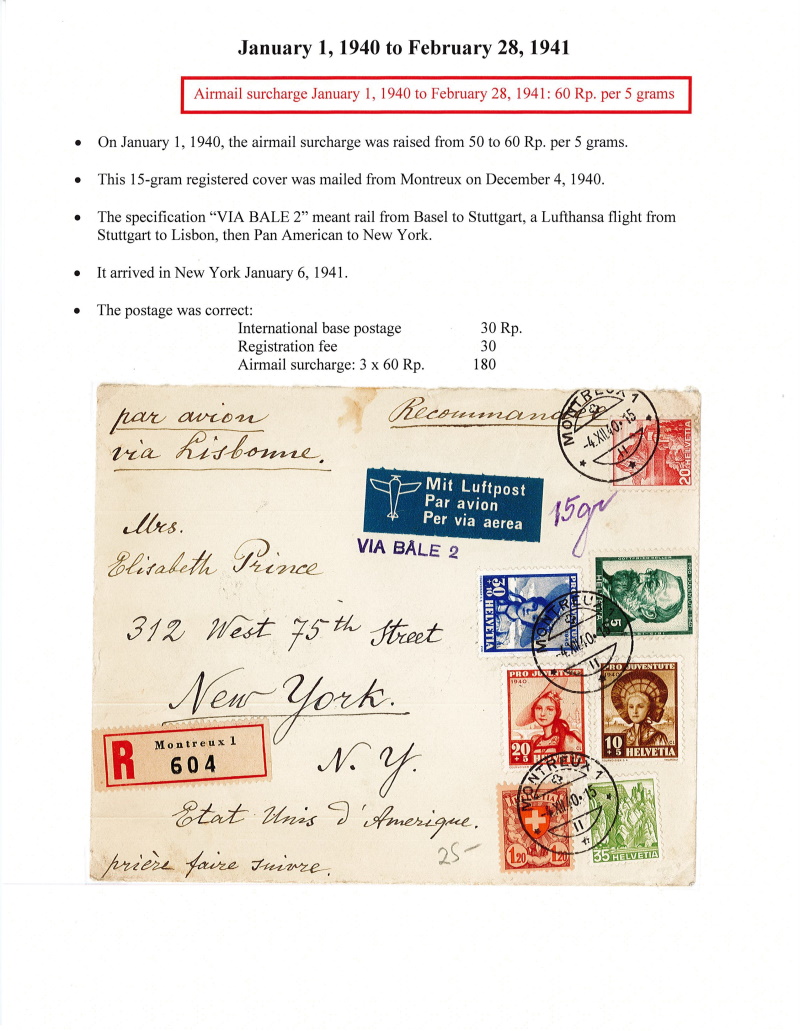 January 1, 1940 to February 28, 1941
Airmail surcharge January 1, 1940 to February 28, 1941: 60 Rp. per 5 grams
• On January 1, 1940, the airmail surcharge was raised from 50 to 60 Rp. per 5 grams.
• This 15-gram registered cover was mailed from Montreux on December 4, 1940.
• The specification “VIA BALE 2” meant rail from Basel to Stuttgart, a Lufthansa flight from
Stuttgart to Lisbon, then Pan American to New York.
• It arrived in New York January 6, 1941.
• The postage was correct:
International base postage 30 Rp.
Registration fee 30
Airmail surcharge: 3 x 60 Rp. 180
par avion
Recommandé
via Lisbonne.
MONTREUX 1
-4.XII.40-15
II
20 HELVETIA
Mit Luftpost
Par avion
Per via aerea
15gr
VIA BÂLE 2
Mrs.
Elisabeth Prince
312 West 75th Street
New York.
N. Y.
Etat Unis d'Amerique.
prière faire suivre.
R
Montreux 1
604
25-
30+10 HELVETIA
MONTREUX 1
-4.XII.40-
II
PRO JUVENTUTE
1940
20+5
PRO JUVENTUTE
1940
10+5
HELVETIA
MONTREUX 1
-4.XII.40-15
II
1.20
1.20
35 HELVETIA